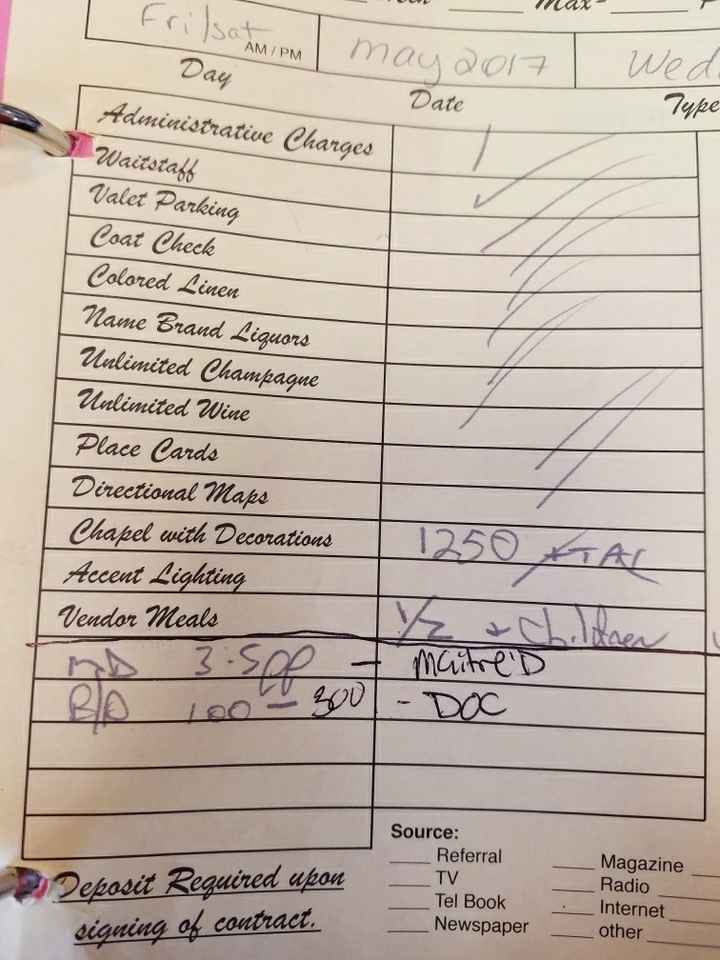 Max-
Fri/sat AM / PM may 2017 Wed
Day Date Type
Administrative Charges
Waitstaff
Valet Parking
Coat Check
Colored Linen
Name Brand Liquors
Unlimited Champagne
Unlimited Wine
Place Cards
Directional Maps
Chapel with Decorations 1250 + TAX
Accent Lighting
Vendor Meals 1/2 + Children
MD 3-5 pp - Maitre'D
B/D 100 - 300 - DOC
Source:
Referral Magazine
TV Radio
Tel Book Internet
Newspaper other
Deposit Required upon
signing of contract.